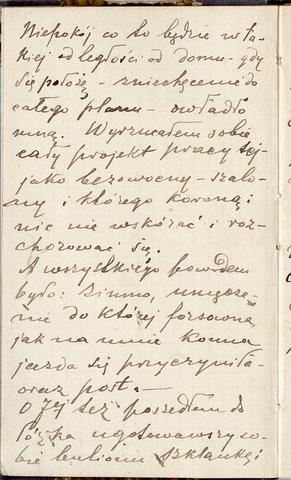 Niepokój co to będzie w ta-
kiej odległości od domu - gdy
się położę - zniechęcenie do
całego planu - owładło
mną. Wyrzucałem sobie
cały projekt pracy tej -
jako bezowocny - szalo-
ny i którego koroną:
nic nie wskórać i roz-
chorować się.
A wszystkiego powodem
było: zimno, zmęcze-
nie do której forsowna
jak na mnie konna
jazda się przyczyniła -
oraz post. -
O 7ej też poszedłem do
łóżka ugotowawszy so-
bie bulionu szklankę i